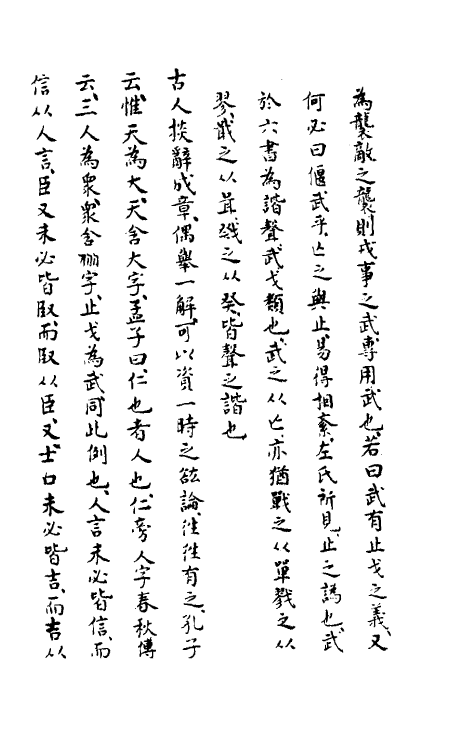 為襲敵之襲則戎事之武專用武也若曰武有止戈之義又
何必曰偃武乎亾之與止易得相紊左氏所見止之譌也武
於六書為諧聲武戈類也武之从亾亦猶戰之从單戮之从
翏戢之从咠戣之从癸皆聲之諧也
古人掞辭成章偶舉一解可以資一時之談論徃徃有之孔子
云惟天為大天含大字孟子曰仁也者人也仁旁人字春秋傳
云三人為衆衆含㐺字止戈為武同此例也人言未必皆信而
信从人言臣又未必皆臤而臤从臣又士口未必皆吉而吉从